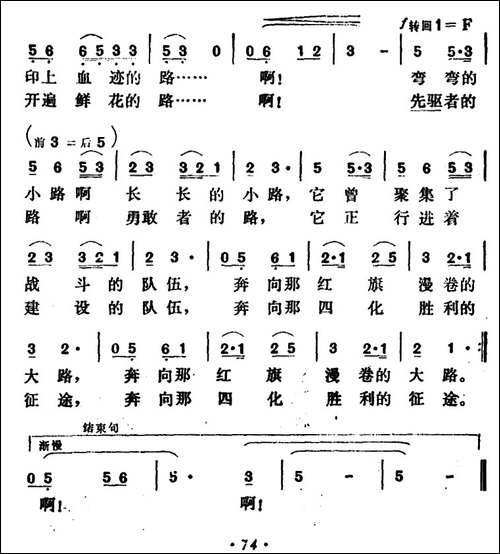 f转回1=F
5 6 6 5 3 3 | 5 3 0 | 0 6 1 2 | 3 - | 5 5·3 |
印上 血 迹的 路…… 啊! 弯 弯的
开遍 鲜 花的 路…… 啊! 先驱者的
(前3=后5)
5 6 5 3 | 2 3 3 2 1 | 2 3· | 5 5·3 | 5 6 5 3 |
小路啊 长 长 的 小路, 它 曾 聚集了
路 啊 勇敢 者 的 路, 它 正 行进着
2 3 3 2 1 | 2 3· | 0 5 6 1 | 2·1 2 5 | 3 2·1 |
战 斗 的 队伍, 奔 向那 红 旗 漫卷的
建 设 的 队伍, 奔 向那 四 化 胜利的
3 2· | 0 5 6 1 | 2·1 2 5 | 3 2·1 | 2 1· :‖
大 路, 奔 向那 红 旗 漫 卷的 大 路。
征 途, 奔 向那 四 化 胜 利的 征 途。
结束句
渐慢
0 5 5 6 | 5· 3 | 5 - | 5 - ‖
啊! 啊!
·74·